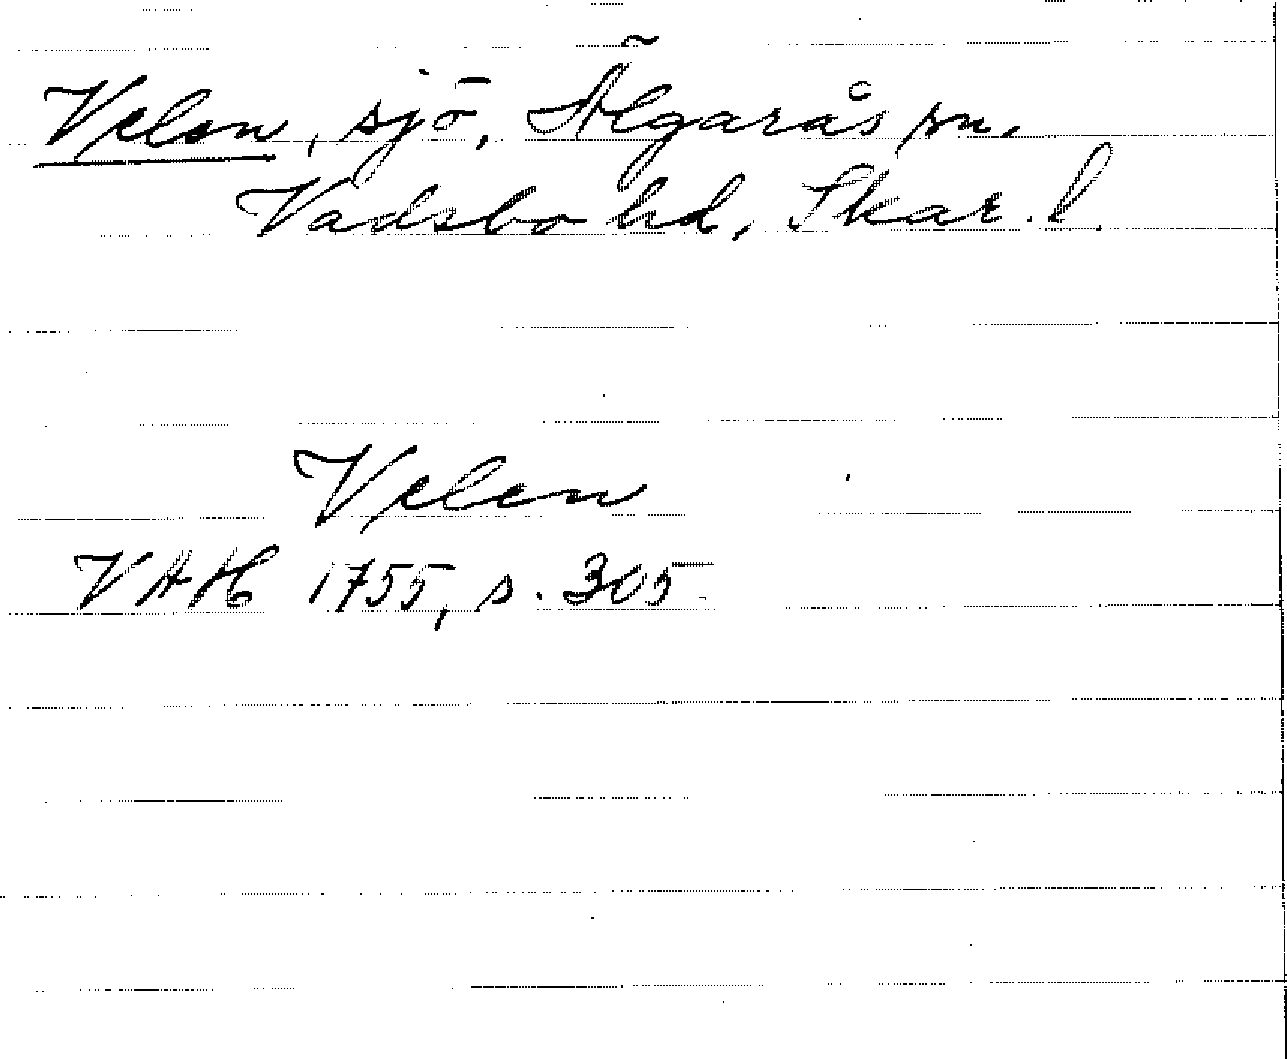 Velen, sjö, Älgarås sn.
Vadsbo hd, Skar. l.
Velen
VAH 1755, s. 305